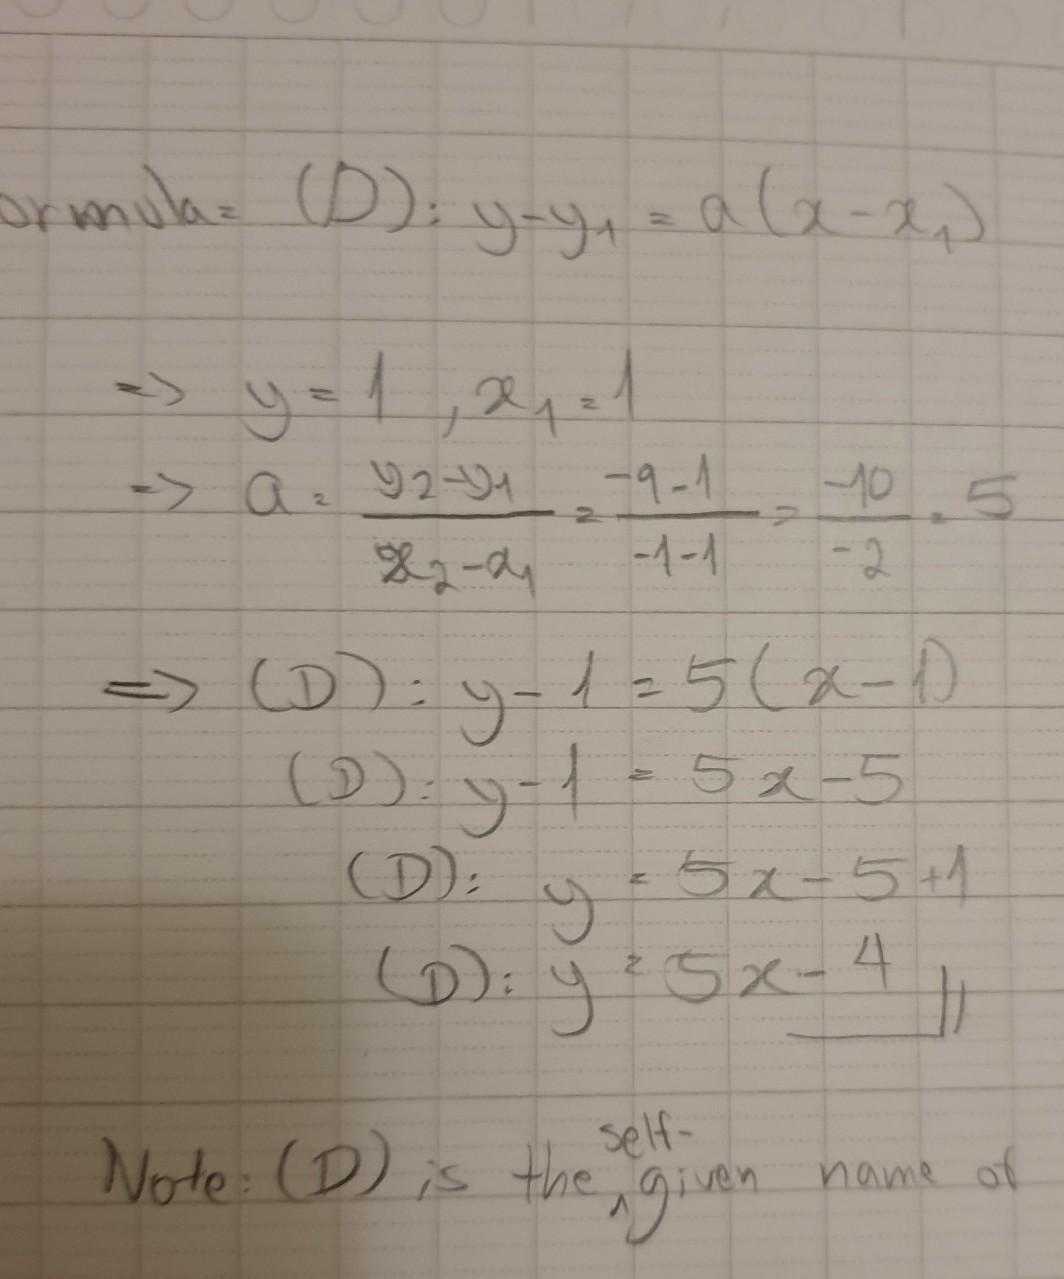 ormula= (D): y-y₁ = a(x-x₁)
=> y = 1 , x₁ = 1
=> a = y₂-y₁/x₂-x₁ = -9-1/-1-1 = -10/-2 = 5
=> (D): y-1 = 5(x-1)
(D): y-1 = 5x-5
(D): y = 5x-5+1
(D): y = 5x-4
Note: (D) is the self-given name of